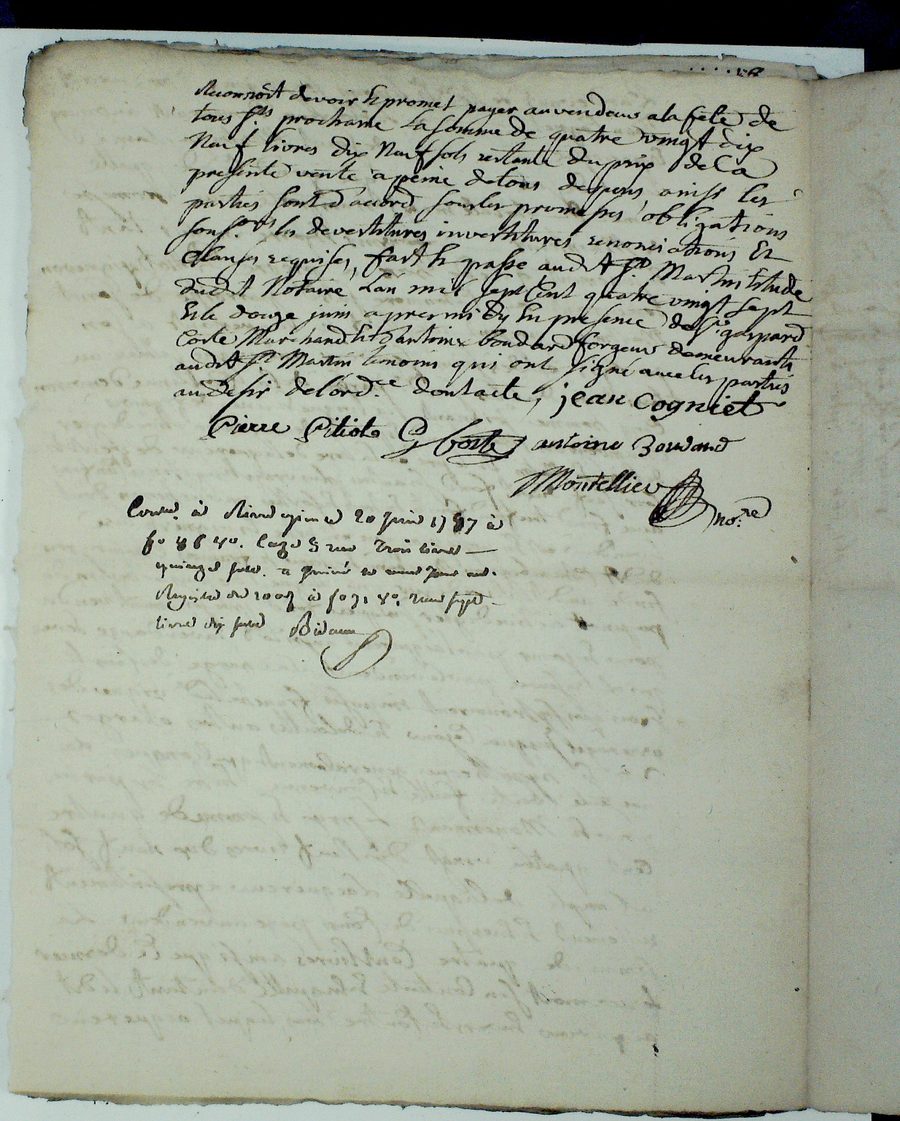 Reconnoit devoir et promet payer au vendeur a la fete de
tous s.ts prochaine la somme de quatre vingt dix
Neuf livres dix Neuf sols restante du prix de la
presente vente a peine de tous depens, ainsi les
parties sont d'accord sous les promesses, obligations
les devertitures invertitures renonciations Et
Clauses requises, fait et passé audit S.t Martin Etude
dudit Notaire L'an mil sept Cent quatre vingt sept
Et le douze juin apres midy En presence de S.r gaspard
Coste Marchand Et antoine boudard forgeur demeurants
audit S.t Martin temoins qui ont signé avec les parties
au desir de l'ord.ce dont acte, jean Cogniet
Pierre Pitiot G Coste antoine Boudard
Montellier no.re
à Rive 20 juin 1787 à
f.o v.o. Case 5 Trois livres
quinze sols.
Registre de à f.o 71 v.o. sept
livres dix sols